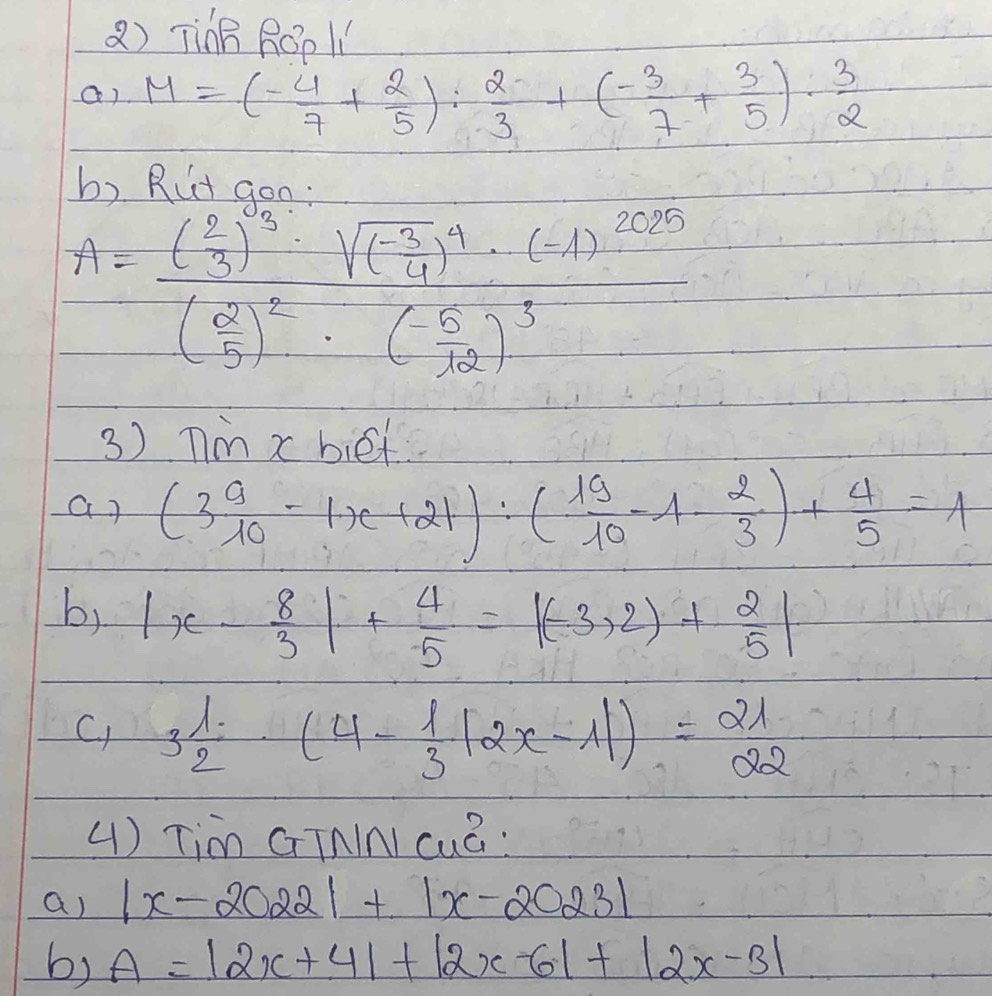 2) Tính hợp lí
a) M = (-4/7 + 2/5) : 2/3 + (-3/7 + 3/5) : 3/2
b) Rút gọn:
A = ((2/3)^3 · √(-3/4)^4 · (-1)^2025) / ((2/5)^2 · (-5/12)^3)
3) Tìm x biết
a) (3 9/10 - |x + 2|) : (19/10 - 1 - 2/3) + 4/5 = 1
b) |x - 8/3| + 4/5 = |(-3,2) + 2/5|
c) 3 1/2 · (4 - 1/3|2x - 1|) = 21/22
4) Tìm GTNN của:
a) |x - 2022| + |x - 2023|
b) A = |2x + 4| + |2x - 6| + |2x - 3|